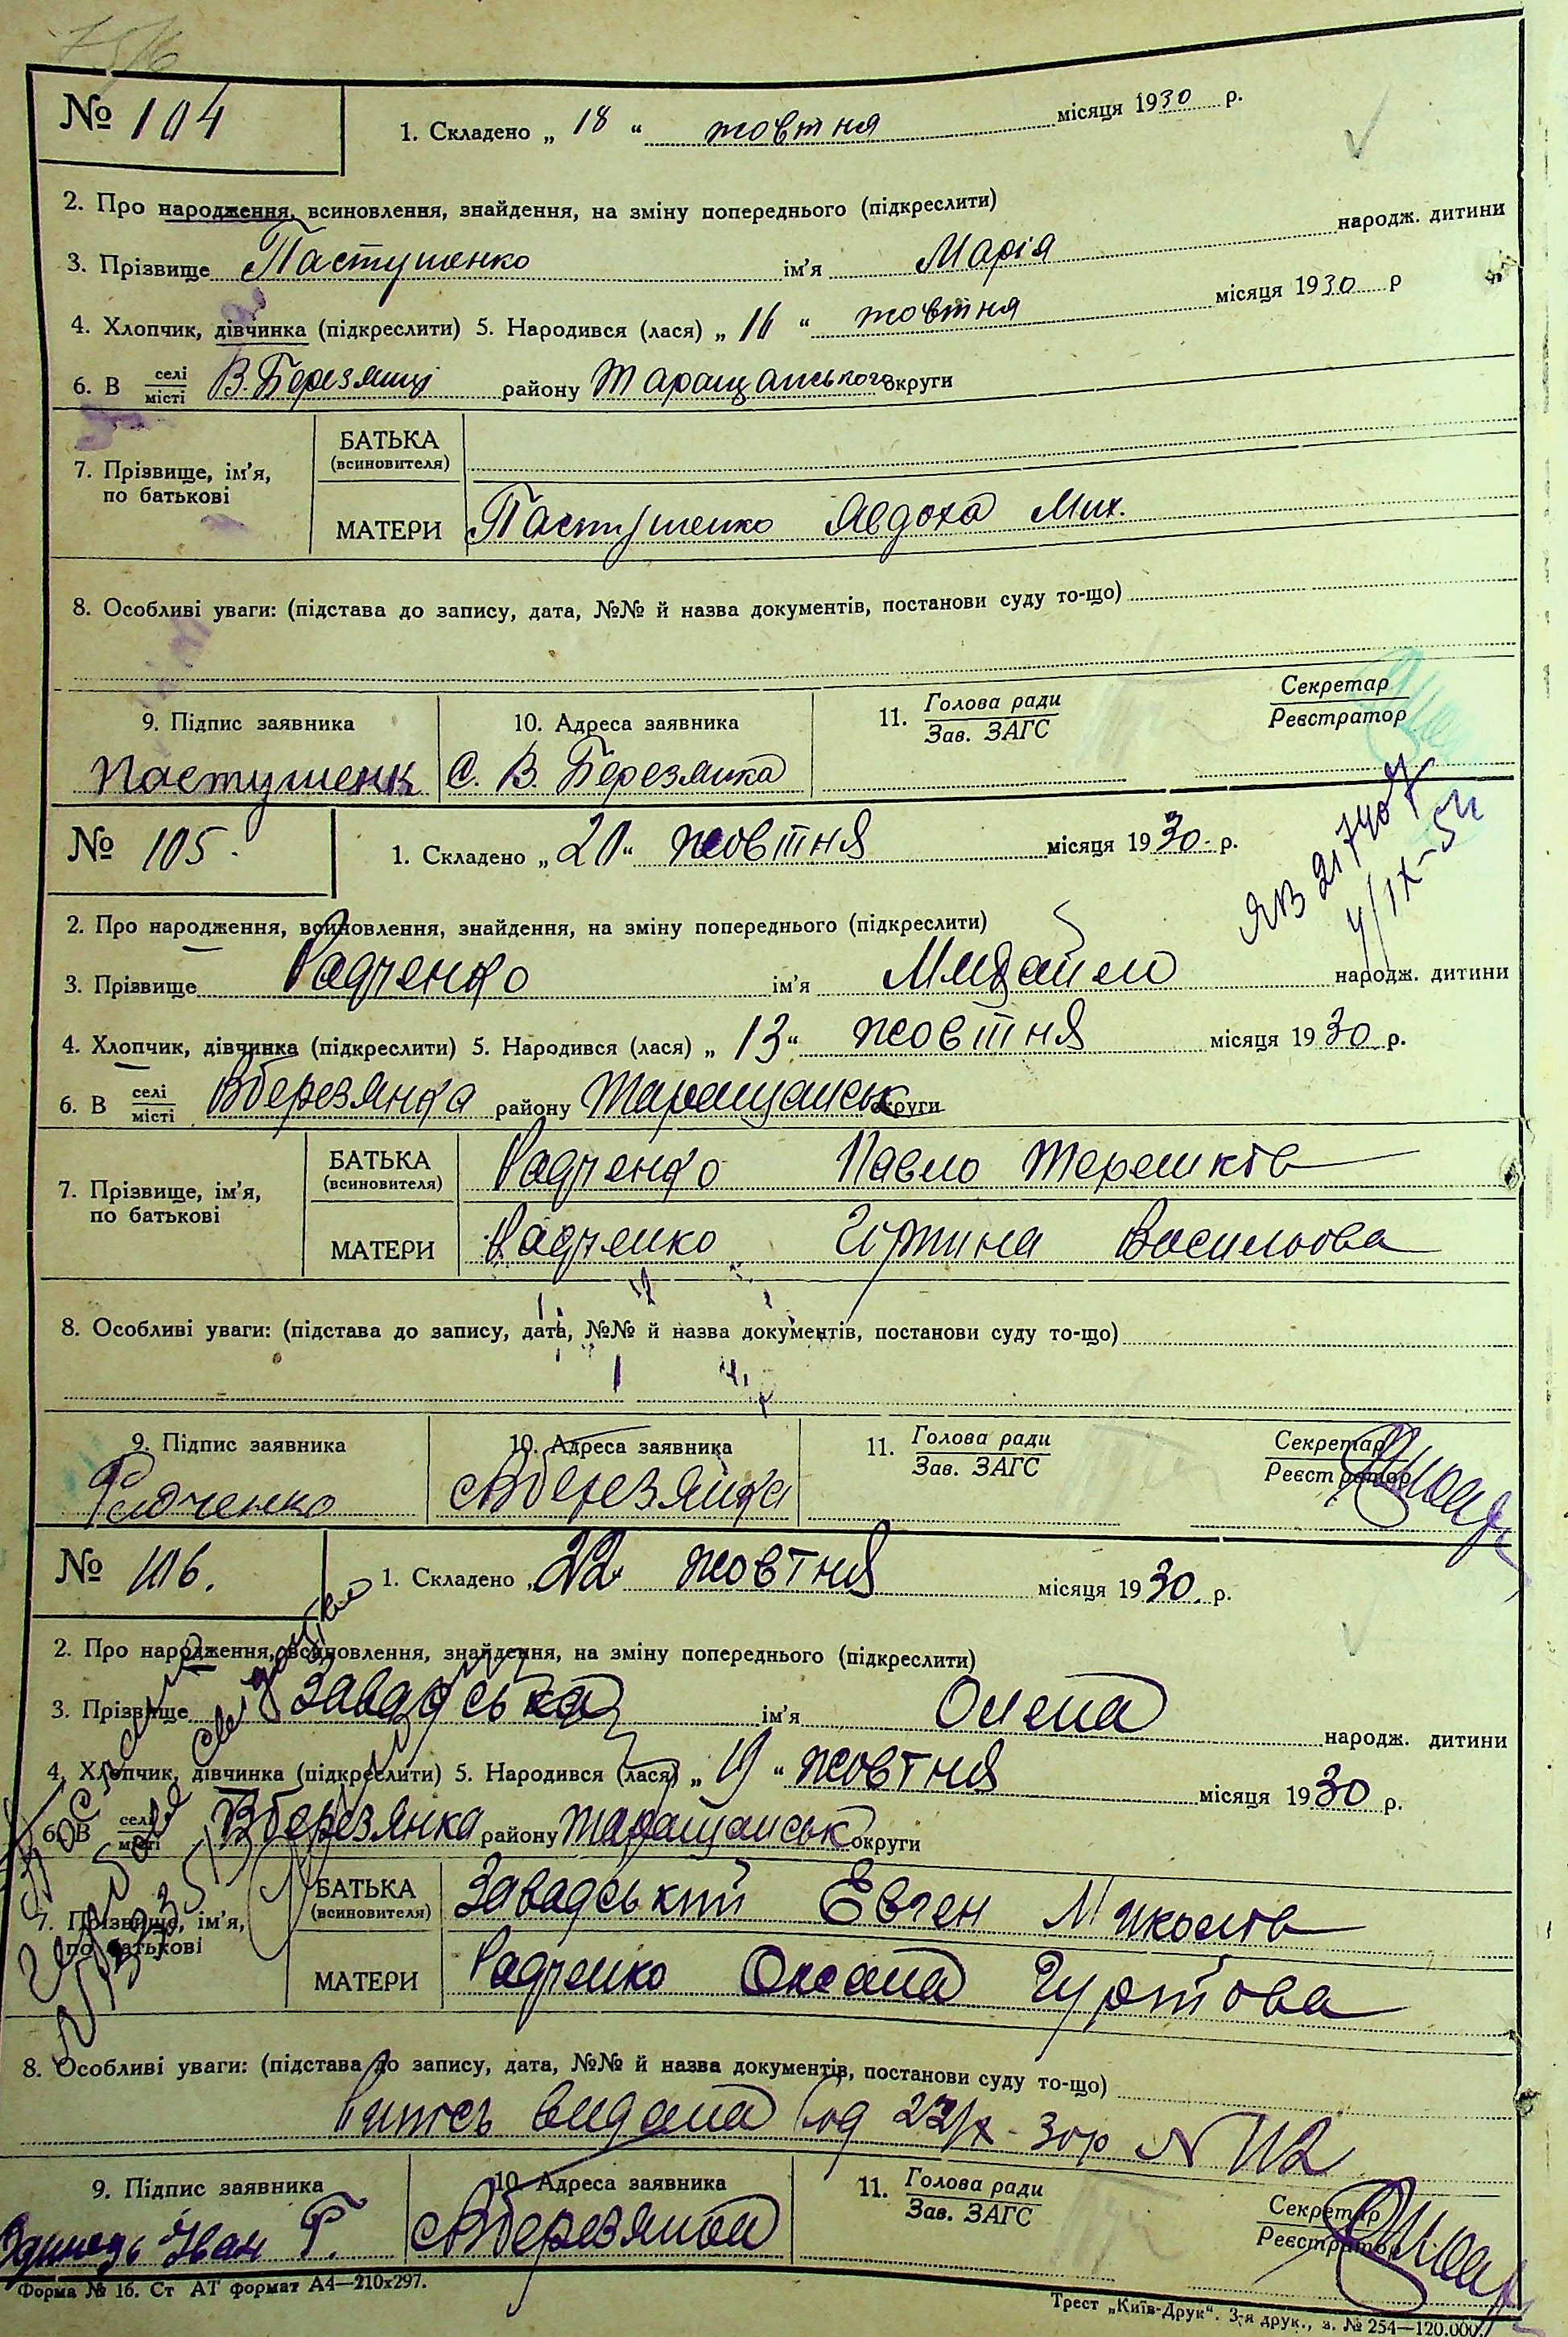 № 104
1. Складено „ 18 “ жовтня місяця 1930 р.
2. Про народження, всиновлення, знайдення, на зміну попереднього (підкреслити)
3. Прізвище Пастушенко ім'я Марія народж. дитини
4. Хлопчик, дівчинка (підкреслити) 5. Народився (лася) „ 16 “ жовтня місяця 1930 р
6. В селі/місті В. Березянці району Таращанського округи
7. Прізвище, ім'я, по батькові
БАТЬКА (всиновителя)
МАТЕРИ Пастушенко Явдоха Мих.
8. Особливі уваги: (підстава до запису, дата, №№ й назва документів, постанови суду то-що)
9. Підпис заявника 10. Адреса заявника 11. Голова ради/Зав. ЗАГС Секретар/Реєстратор
Пастушенк С. В. Березянка
№ 105.
1. Складено „ 20 “ жовтня місяця 1930. р.
ЯВ 217407
4/IX-51
2. Про народження, всиновлення, знайдення, на зміну попереднього (підкреслити)
3. Прізвище Радченко ім'я Михайло народж. дитини
4. Хлопчик, дівчинка (підкреслити) 5. Народився (лася) „ 13 “ жовтня місяця 1930 р.
6. В селі/місті Вберезянка району Таращанськ округи
7. Прізвище, ім'я, по батькові
БАТЬКА (всиновителя) Радченко Павло Терешков
МАТЕРИ Радченко Васильова
8. Особливі уваги: (підстава до запису, дата, №№ й назва документів, постанови суду то-що)
9. Підпис заявника 10. Адреса заявника 11. Голова ради/Зав. ЗАГС Секретар/Реєстратор
Радченко сВберезянка
№ 106.
1. Складено „ 22 жовтня місяця 1930. р.
2. Про народження, всиновлення, знайдення, на зміну попереднього (підкреслити)
3. Прізвище Завадська ім'я Олена народж. дитини
4. Хлопчик, дівчинка (підкреслити) 5. Народився (лася) „ 19 “ жовтня місяця 1930 р.
6. В селі/місті Вберезянка району Таращанськ округи
7. Прізвище, ім'я, по батькові
БАТЬКА (всиновителя) Завадський Евген Миколов
МАТЕРИ Радченко Оксана
8. Особливі уваги: (підстава до запису, дата, №№ й назва документів, постанови суду то-що)
Витсь видана од 22/X-30р N 112
9. Підпис заявника 10. Адреса заявника 11. Голова ради/Зав. ЗАГС Секретар/Реєстратор
Одинець Іван Г. сВберезянка
Форма № 16. Ст АТ формат А4—210х297.
Трест „Київ-Друк“. 3-я друк., з. № 254—120.000.